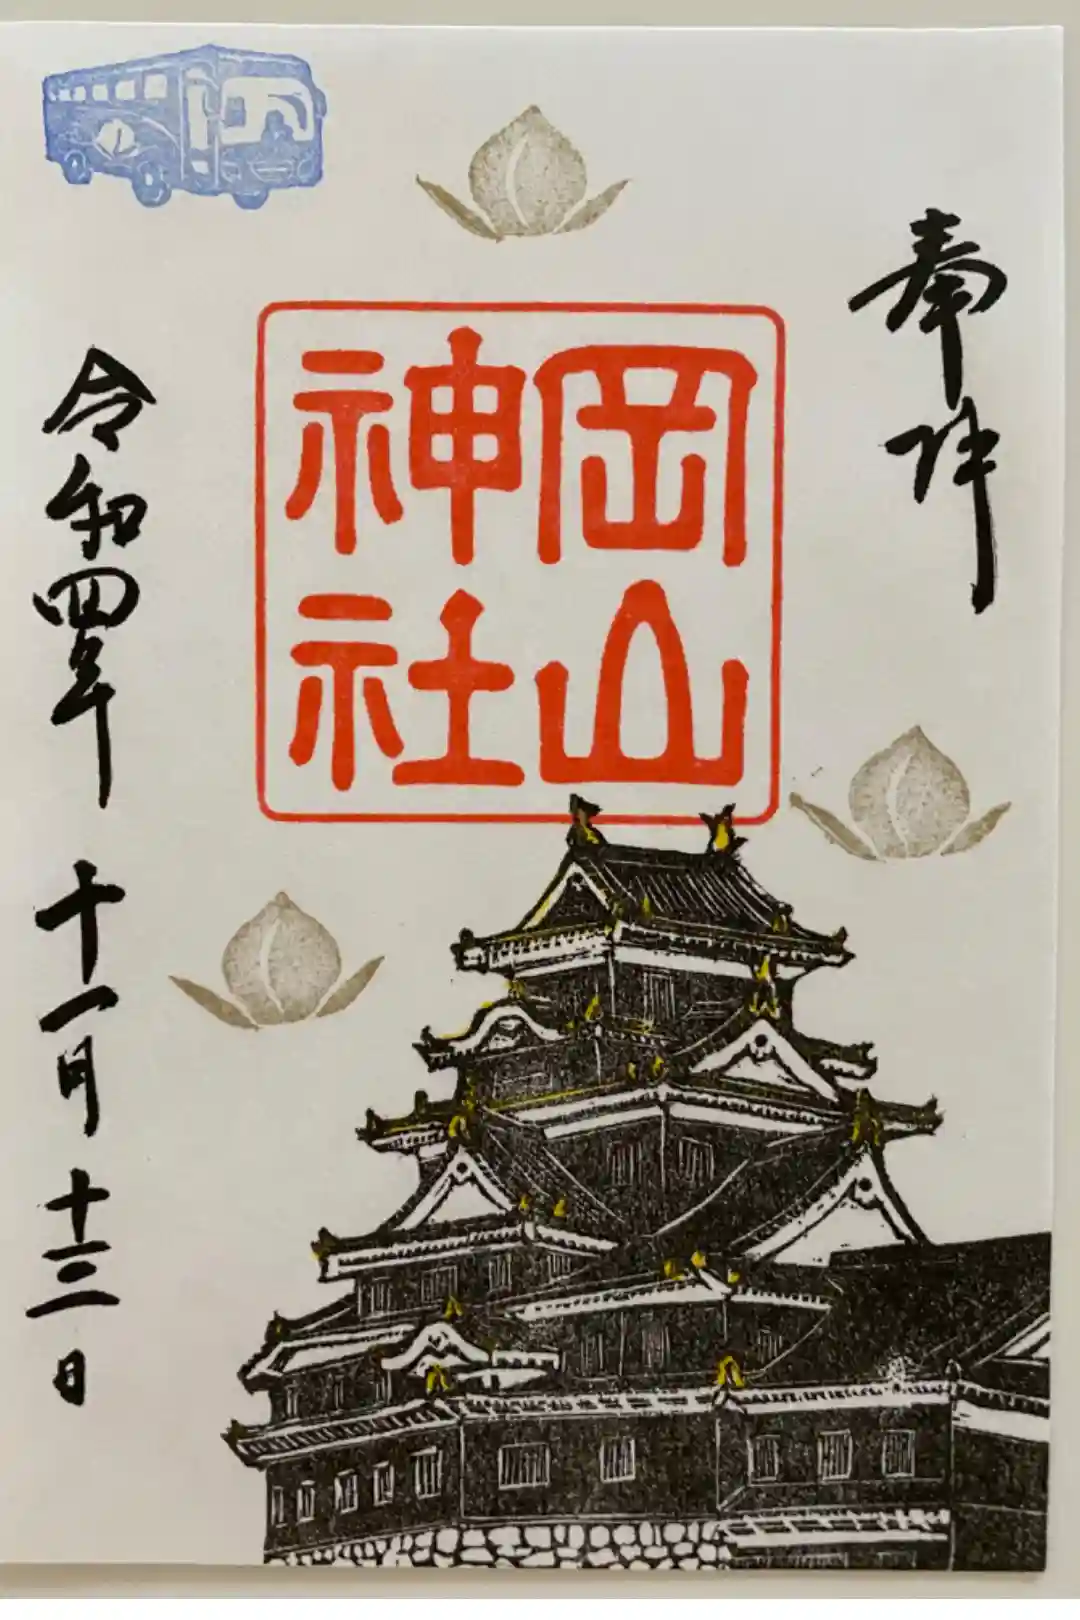 奉拝
岡山
神社
令和四年十一月十三日